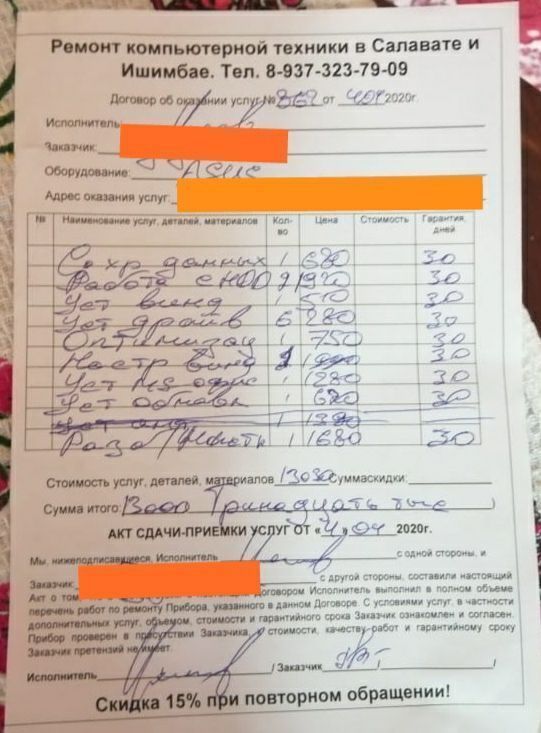 Ремонт компьютерной техники в Салавате и
Ишимбае. Тел. 8-937-323-79-09
Договор об оказании услуг № от 2020г.
Исполнитель
Заказчик:
Оборудование: ASUS
Адрес оказания услуг:
№ Наименование услуг, деталей, материалов Кол-во Цена Стоимость Гарантия, дней
Сохр данных 1 680 30
Работа с HDD 30
Уст винд 1 30
Уст драйв 6 280 30
Оптимизац 1 750 30
Настр винд 30
Уст MS офис 1 1280 30
Уст обновл 1 30
1
1 1680 30
Стоимость услуг, деталей, материалов 13030 Суммаскидки:
Сумма итого: 13000 Тринадцать тыс
АКТ СДАЧИ-ПРИЕМКИ УСЛУГ ОТ «4» 04 2020г.
Мы, нижеподписавшиеся, Исполнитель с одной стороны, и
Заказчик: с другой стороны, составили настоящий
Акт о том, Договором Исполнитель выполнил в полном объеме
перечень работ по ремонту Прибора, указанного в данном Договоре. С условиями услуг, в частности
дополнительных услуг, объемом, стоимости и гарантийного срока Заказчик ознакомлен и согласен.
Прибор проверен в присутствии Заказчика, стоимости, качеству работ и гарантийному сроку
Заказчик претензий не имеет.
Исполнитель / Заказчик / /
Скидка 15% при повторном обращении!